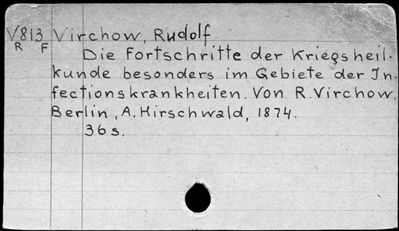 V813 Virchow, Rudolf
R F
Die Fortschritte der Kriegsheil-
kunde besonders im Gebiete der In-
fectionskrankheiten. Von R. Virchow.
Berlin, A. Hirschwald, 1874.
36 s.